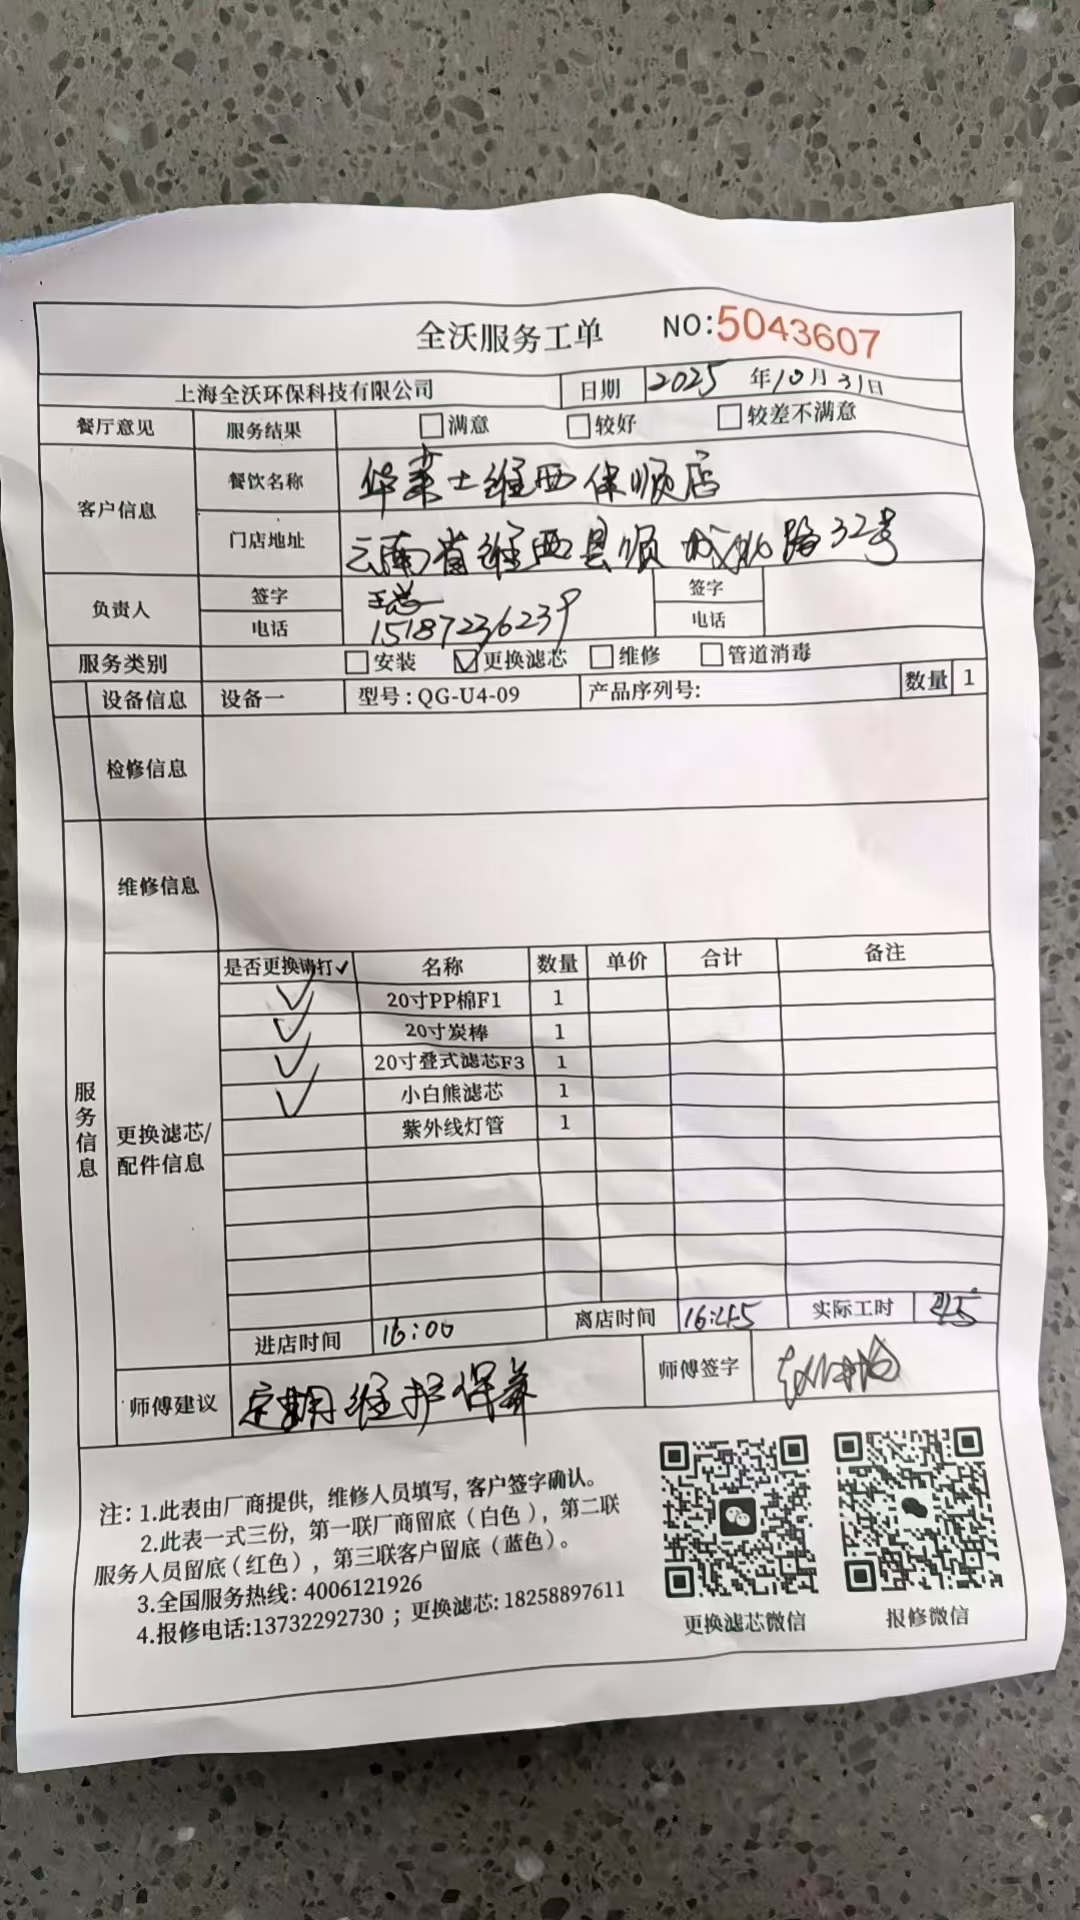 全沃服务工单 NO:5043607
上海全沃环保科技有限公司 日期 2025年10月31日
餐厅意见 服务结果 满意 较好 较差不满意
客户信息 餐饮名称 华莱士维西保顺店
门店地址 云南省维西县顺城北路32号
负责人 签字 签字
电话 15187236239 电话
服务类别 安装 更换滤芯 维修 管道消毒
设备信息 设备一 型号:QG-U4-09 产品序列号: 数量 1
检修信息
维修信息
服务信息
更换滤芯/
配件信息
是否更换请打✓ 名称 数量 单价 合计 备注
✓ 20寸PP棉F1 1
✓ 20寸炭棒 1
✓ 20寸叠式滤芯F3 1
✓ 小白熊滤芯 1
紫外线灯管 1
进店时间 16:00 离店时间 16:45 实际工时 45
师傅建议 定期维护保养 师傅签字
注: 1.此表由厂商提供, 维修人员填写, 客户签字确认。
2.此表一式三份, 第一联厂商留底 (白色), 第二联
服务人员留底 (红色), 第三联客户留底 (蓝色)。
3.全国服务热线: 4006121926
4.报修电话:13732292730 ; 更换滤芯: 18258897611
更换滤芯微信 报修微信